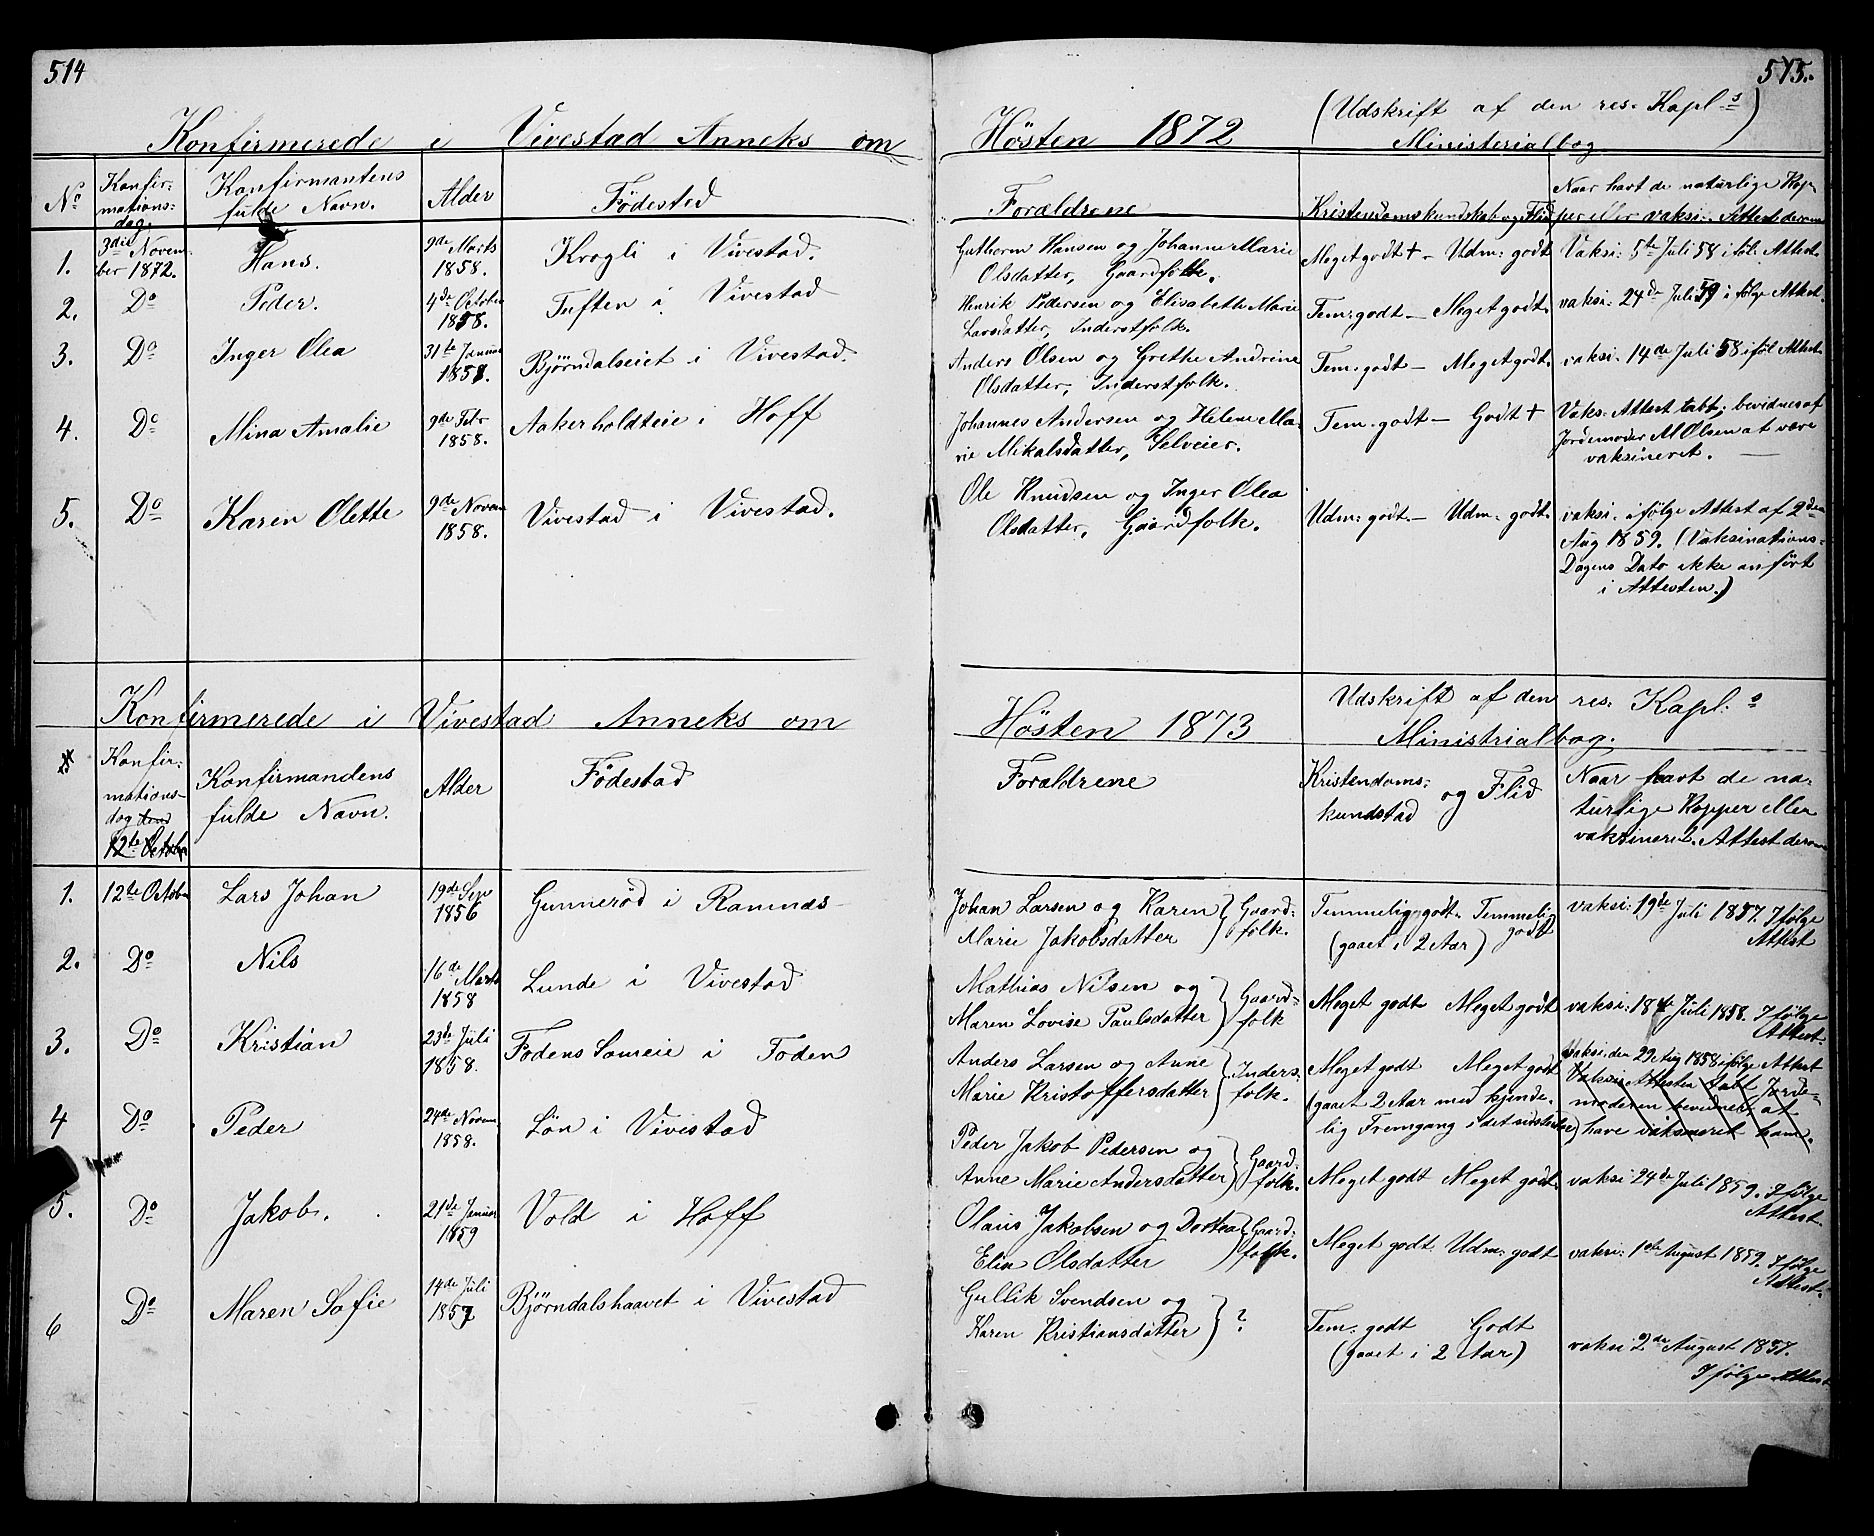 514
Konfirmerede i Vivestad Anneks om
No Konfirmationsdag Konfirmantens fulde Navn. Alder Födested
1. 3die November 1872. Hans. 9de Marts 1858. Krogli i Vivestad.
2. Do Peder. 4de October 1858. Tuften i Vivestad
3. Do Inger Olea 31te Januar Bjørndalseiet i Vivestad.
4. Do Mina Amalie 9de Febr 1858. Aakerholdteie i Hoff
5. Do Karen Olette 9de Novem 1858. Vivestad i Vivestad.
Konfirmerede i Vivestad Anneks om
Konfirmationsdag Konfirmandens fulde Navn. Alder Födestad
12te October
1. 12te October Lars Johan 19de Sep 1856 Gunneröd i Ramnæs
2. Do Nils 16de Marts 1858 Lunde i Vivestad
3. Do Kristian 23de Juli 1858. Fodens Sameie i Foden
4 Do Peder 24de Novem 1858. Lön i Vivestad
5. Do Jakob. 21de Januar 1859 Vold i Hoff
6 Do Maren Sofie 14de Juli 1857 Bjørndalshaavet i Vivestad
515.
Hösten 1872 (Udskrift af den res. Kapl-s
Ministerialbog)
Forældrene Kristendomskundskab og Flid Naar havt de naturlige Kopper eller vaksi. Attest derom
Guthorm Hansen og Johanne Marie Meget godt + - Udm: godt Vaksi. 5te Juli 58 iföl. Attest
Olsdatter, Gaardfolk.
Henrik Pedersen og Elisabeth Marie Tem: godt - Meget godt. vaksi: 24de Juli 59 i følge Attest.
Larsdatter, Inderstfolk.
Anders Olsen og Grethe Andrine Tem. godt - Meget godt. vaksi. 14de Juli 58 iföl Attest
Olsdatter, Inderstfolk.
Johannes Andersen og Helene Ma- Tem. godt - Godt + Vaks. Attest tabt; bevidnes af
rie Mikalsdatter, Selveier. Jordemoder M Olsen at være
vaksineret.
Ole Knudsen og Inger Olea
Olsdatter, Gaardfolk. Udm: godt. - Udm: godt. vaksi. ifølge Attest af 2den
Aug 1859. (Vaksinations-
Dagens Dato ikke anført
i Attesten.)
Hösten 1873 Udskrift af den res: Kapl:
Ministrialbog.
Forældrene Kristendoms- og Flid Naar havt de na-
kundstad turlige Kopper eller
vaksineri. Attest derom
Johan Larsen og Karen Gaard- Temmelig godt. Temmelig godt vaksi: 19de Juli 1857. Ifølge
Marie Jakobsdatter folk. (gaaet i 2 Aar) Attest
Mathias Nilsen og Gaard-
Maren Lovise Paulsdatter folk Meget godt Meget godt vaksi: Juli 1858. Ifølge
Attest.
Anders Larsen og Anne Inders- Meget godt Meget godt vaksi. den 29 Aug 1858 ifølge Attest
Marie Kristoffersdatter folk. (gaaet 2 Aar med kjende- Vaksi Attesten tabt Jorde-
lig Fremgang i det sidste) moderen bevidner at
have vaksineret ham.
Peder Jakob Pedersen og Gaard-
Anne Marie Andersdatter folk. Meget godt Meget godt. vaksi 24de Juli 1859. Ifølge
Attest
Olaus Jakobsen og Dortea Gaard-
Elin Olsdatter folk. Meget godt. Udm: godt vaksi: August 1859. Ifølge
Attest.
Gullik Svendsen og
Karen Kristiansdatter ? Tem: godt Godt
(gaaet i 2 Aar) vaksi 2de August 1857.
Ifølge Attest